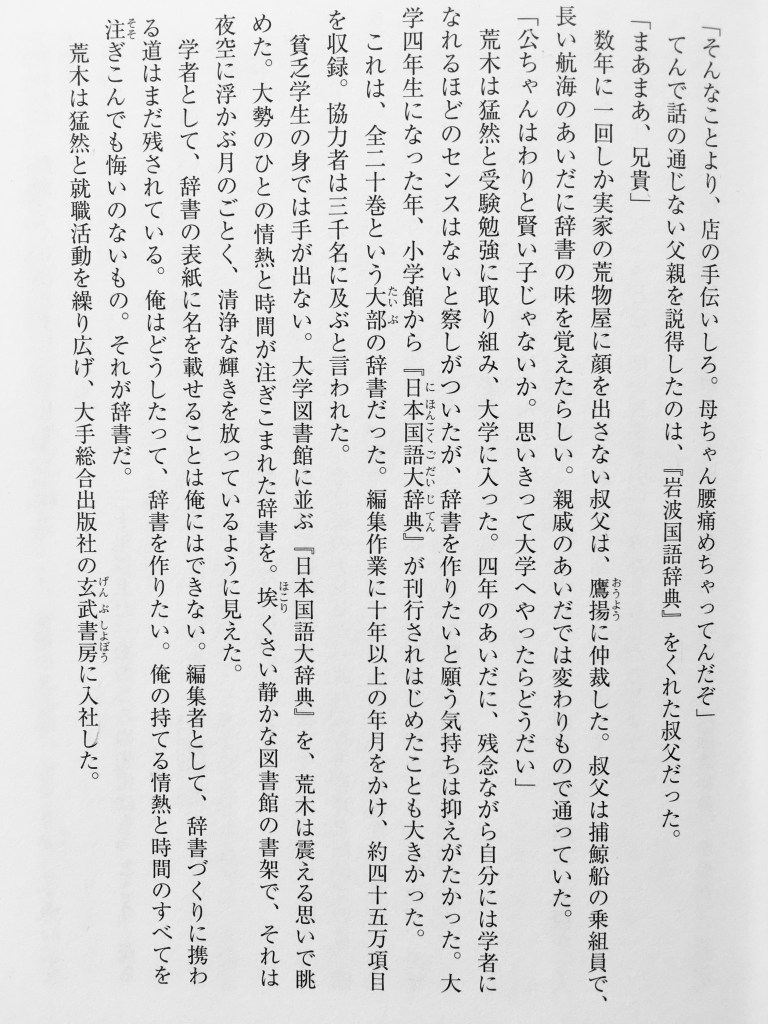 「そんなことより、店の手伝いしろ。母ちゃん腰痛めちゃってんだぞ」
てんで話の通じない父親を説得したのは、『岩波国語辞典』をくれた叔父だった。
「まあまあ、兄貴」
数年に一回しか実家の荒物屋に顔を出さない叔父は、鷹揚に仲裁した。叔父は捕鯨船の乗組員で、
長い航海のあいだに辞書の味を覚えたらしい。親戚のあいだでは変わりもので通っていた。
「公ちゃんはわりと賢い子じゃないか。思いきって大学へやったらどうだい」
荒木は猛然と受験勉強に取り組み、大学に入った。四年のあいだに、残念ながら自分には学者に
なれるほどのセンスはないと察しがついたが、辞書を作りたいと願う気持ちは抑えがたかった。大
学四年生になった年、小学館から『日本国語大辞典』が刊行されはじめたことも大きかった。
これは、全二十巻という大部の辞書だった。編集作業に十年以上の年月をかけ、約四十五万項目
を収録。協力者は三千名に及ぶと言われた。
貧乏学生の身では手が出ない。大学図書館に並ぶ『日本国語大辞典』を、荒木は震える思いで眺
めた。大勢のひとの情熱と時間が注ぎこまれた辞書を。埃くさい静かな図書館の書架で、それは
夜空に浮かぶ月のごとく、清浄な輝きを放っているように見えた。
学者として、辞書の表紙に名を載せることは俺にはできない。編集者として、辞書づくりに携わ
る道はまだ残されている。俺はどうしたって、辞書を作りたい。俺の持てる情熱と時間のすべてを
注ぎこんでも悔いのないもの。それが辞書だ。
荒木は猛然と就職活動を繰り広げ、大手総合出版社の玄武書房に入社した。